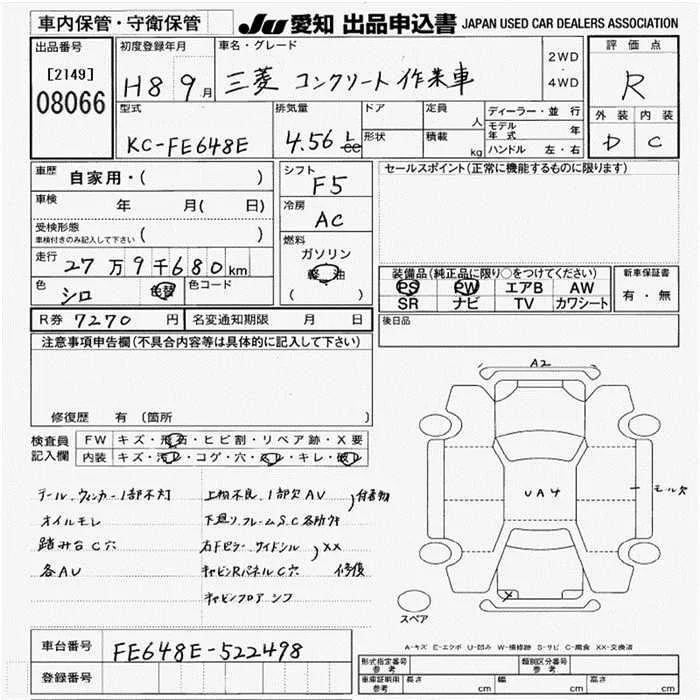 車内保管・守衛保管
JU 愛知 出品申込書 JAPAN USED CAR DEALERS ASSOCIATION
出品番号
[2149]
08066
初度登録年月
H8 9月
車名・グレード
三菱 コンクリート作業車
2WD
4WD
評価点
R
外装 内装
D C
型式
KC-FE648E
排気量
4.56 L
cc
ドア
形状
定員 人
積載 kg
ディーラー・並 行
モデル年式 年
ハンドル 左・右
車歴 自家用・( )
車検 年 月( 日)
受検形態
車検付きのみ記入して下さい ( )
走行 27万9千680km
色 シロ 色替
色コード
シフト
F5
冷房
AC
燃料
ガソリン
軽 油
( )
セールスポイント(正常に機能するものに限ります)
装備品(純正品に限り○をつけてください)
PS PW エアB AW
SR ナビ TV カワシート
新車保証書
有・無
R券 7270 円
名変通知期限 月 日
後日品
注意事項申告欄(不具合内容等は具体的に記入して下さい)
修復歴 有 〔箇所
検査員
記入欄
FW キズ・飛石・ヒビ割・リペア跡・X要
内装 キズ・汚レ・コゲ・穴・スレ・キレ・破レ
テール、ウィンカー1部不灯
オイルモレ
踏み台C穴
各AU
上物不良、1部欠AV
下廻り、フレームS.C各所付
付着物
右Fピラー、サイドシル
XX
キャビンRパネルC穴 修復
キャビンフロア シフ
A2
UA4
モール欠
X
スペア
A-キズ E-エクボ U-凹み W-補修跡 S-サビ C-腐食 XX-交換済
車台番号 FE648E-522498
登録番号
形式指定番号
参考
類別区分番号
参考
車庫証明用
参考
長さ cm
幅 cm
高さ cm